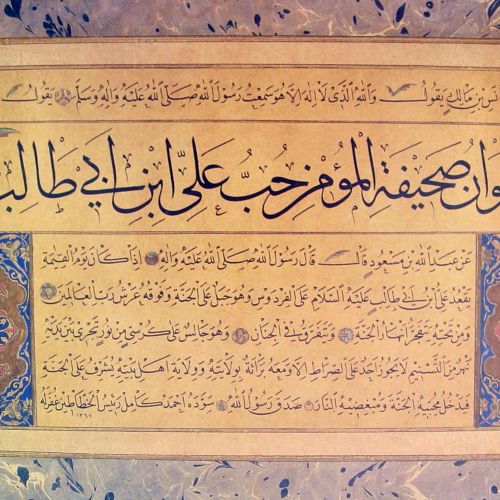 نس بن مالك يقول والله الذى لا اله الا هو سمعت رسول الله صلى الله عليه واله وسلم يقول
وان صحيفة المؤمن حب على ابن ابى طالب
عن عبدالله بن مسعود قال قال رسول الله صلى الله عليه واله اذا كان يوم القيمة
يقعد على ابن ابى طالب عليه السلام على الفردوس وهو جبل على الجنة وفوقه عرش رب العالمين
ومن تحتيه تتفجر انهار الجنة وتتفرق فى الجنان وهو جالس على كرسى من نور تجرى بين يديه
نهر من التسنيم لا يجوز احد على الصراط الا ومعه براءة بولايته وولاية اهل بيته يشرف على الجنة
فيدخل محبيه الجنة ومبغضيه النار صدق رسول الله سوده احمد كامل رئيس الخطاطين غفر له
١٣٩٧